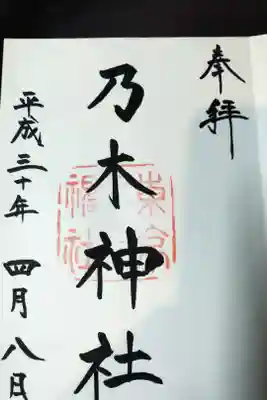 奉拝
乃木神社
平成三十年 四月 八日